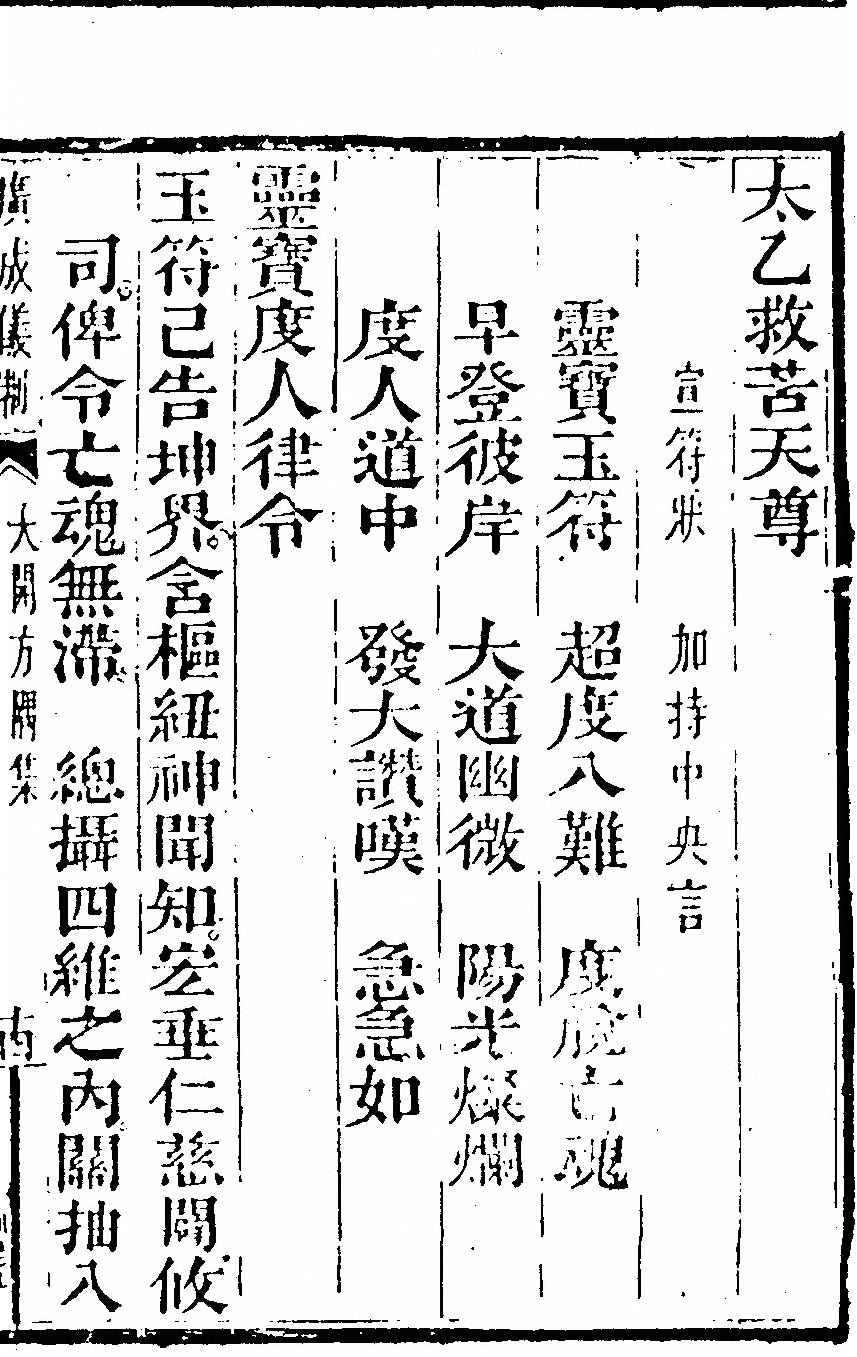 太乙救苦天尊
宣符狀　加持中央言
靈寶玉符　超度八難　度脫亡魂
早登彼岸　大道幽微　陽光燦爛
度人道中　發大讚嘆　急急如
靈寶度人律令
玉符已告坤界含樞紐神聞知宏垂仁慈開攸
司俾令亡魂無滯　總攝四維之內關抽八
廣成儀制　大開方隅集